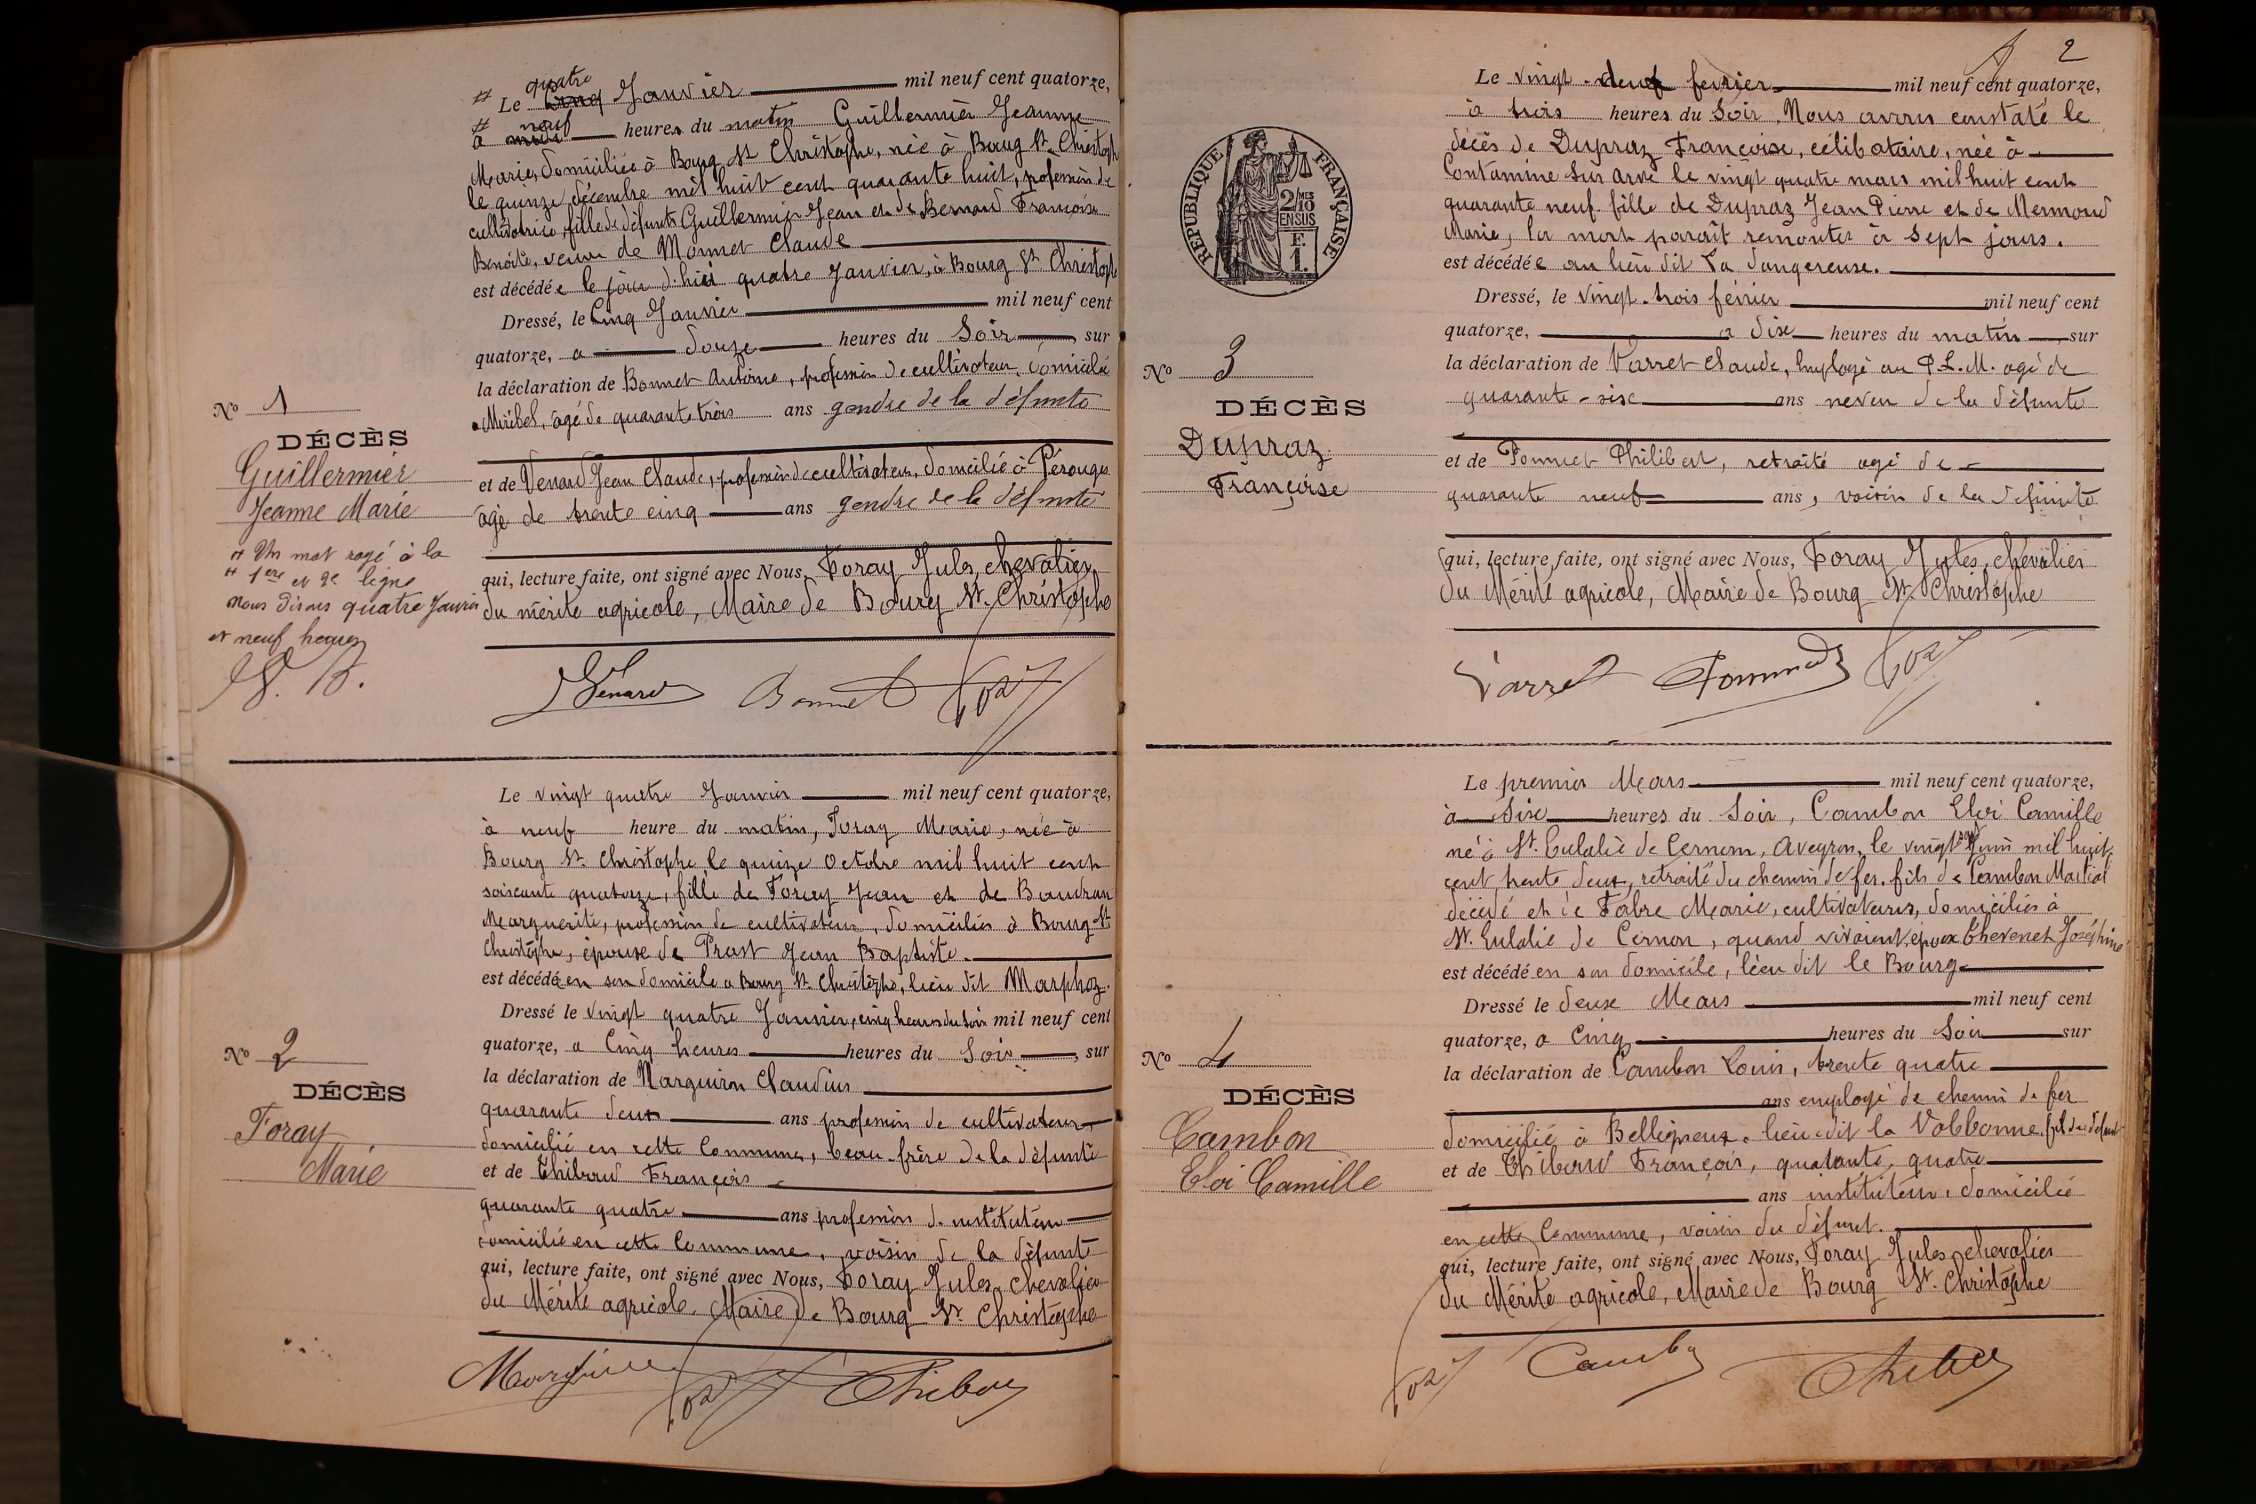 Nº 1
DÉCÈS
Guillermier
Jeanne Marie
# Un mot rayé à la
# 1ere et 2e ligne
nous disons quatre Janvier
et neuf heures
# Le cinq quatre Janvier mil neuf cent quatorze,
# à neuf heures du matin Guillermier Jeanne
Marie, domiciliée à Bourg St Christophe, née à Bourg St Christophe
le quinze décembre mil huit cent quarante huit, profession de
cultivatrice, fille de défunts Guillermier Jean et de Bernard Françoise
Benoite, veuve de Monnet Claude
est décédée le jour d'hier quatre Janvier, à Bourg St Christophe
Dressé, le Cinq Janvier mil neuf cent
quatorze, a douze heures du Soir, sur
la déclaration de Bonnet Antoine, profession de cultivateur, domicilié
Miribel, âgé de quarante trois ans gendre de la défunte
et de Venard Jean Claude, profession de cultivateur, domicilié à Pérouges
âgé de trente cinq ans gendre de la défunte
qui, lecture faite, ont signé avec Nous, Foray Jules, chevalier
du mérite agricole, Maire de Bourg St. Christophe
Venard Bonnet Foray
Nº 2
DÉCÈS
Foray
Marie
Le vingt quatre Janvier mil neuf cent quatorze,
à neuf heure du matin, Foray Marie, née à
Bourg St. Christophe le quinze Octobre mil huit cent
soixante quatorze, fille de Foray Jean et de Baudran
Marguerite, profession de cultivateur, domiciliés à Bourg St
Christophe, épouse de Prost Jean Baptiste.
est décédé en son domicile a Bourg St. Christophe, lieu dit Marphoz.
Dressé le vingt quatre Janvier, cinq heures du soir mil neuf cent
quatorze, a Cinq heures heures du Soir, sur
la déclaration de Marguiron Claudius
quarante deux ans profession de cultivateur
domicilié en cette Commune, beau-frère de la défunte
et de Thiboud François
quarante quatre ans profession d'instituteur
domicilié en cette Commune, voisin de la défunte
qui, lecture faite, ont signé avec Nous, Foray Jules, chevalier
du Mérite agricole, Maire de Bourg St. Christophe
Foray Thiboud
2
RÉPUBLIQUE FRANÇAISE
2/10 MES
EN SUS
F.
1.
Nº 3
DÉCÈS
Dupraz
Françoise
Le vingt-deux fevrier mil neuf cent quatorze,
à trois heures du Soir, Nous avons constaté le
décès de Dupraz Françoise, célibataire, née à
Contamine sur Arve le vingt quatre mars mil huit cent
quarante neuf fille de Dupraz Jean Pierre et de Mermoud
Marie, la mort paraît remonter à sept jours.
est décédée au lieu dit La dangereuse.
Dressé, le vingt-trois février mil neuf cent
quatorze, a dix heures du matin, sur
la déclaration de Varret Claude, Employé au P.L.M. agé de
quarante-six ans neveu de la défunte
et de Pommet Philibert, retraité agé de
quarante neuf ans, voisin de la défunte
qui, lecture faite, ont signé avec Nous, Foray Jules, chevalier
du Mérite agricole, Maire de Bourg St. Christophe
Varret Pommet Foray
Nº 4
DÉCÈS
Cambon
Eloi Camille
Le premier Mars mil neuf cent quatorze,
à Six heures du Soir, Cambon Eloi Camille
né à St. Eulalie de Cernon, Aveyron, le vingt Juin mil huit
cent trente deux, retraité du chemin de fer. fils de Cambon Martial
décédé et de Fabre Marie, cultivateurs, domiciliés à
St. Eulalie de Cernon, quand vivaient, époux Thevenet Joséphine
est décédé en son domicile, lieu dit le Bourg
Dressé le deux Mars mil neuf cent
quatorze, a Cinq heures du Soir sur
la déclaration de Cambon Louis, trente quatre
ans employé de chemin de fer
domicilié à Belligneux, lieu dit la Valbonne, fils du défunt
et de Thiboud François, quarante quatre
ans instituteur, domicilié
en cette Commune, voisin du défunt.
qui, lecture faite, ont signé avec Nous, Foray Jules, chevalier
du Mérite agricole, Maire de Bourg St. Christophe
Foray Cambon Thiboud